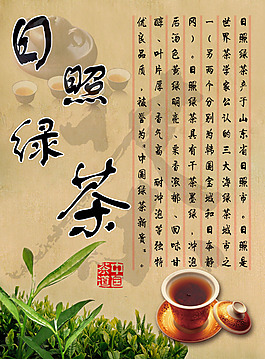 日照绿茶
日照绿茶产于山东省日照市。日照是
世界茶学家公认的三大海绿茶城市之
一(另两个分别为韩国金城和日本静
冈)。日照绿茶具有干茶墨绿，冲泡
后汤色黄绿明亮、栗香浓郁、回味甘
醇、叶片厚、香气高、耐冲泡等独特
优良品质，被誉为“中国绿茶新贵。”
中国
茶道